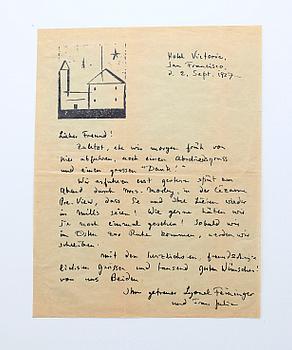 Hotel Victoria,
San Francisco,
d. 2. Sept. 1937
Lieber Freund!
Zuletzt, ehe wir morgen früh von
hier abfahren, noch einen Abschiedsgruss
und einen grossen "Dank"!
Wir erfuhren erst gestern spät am
Abend durch Mrs. in der Cézanne
Pre-View, dass Sie und Ihre Lieben wieder
in Mills seien! Wie gerne hätten wir
Sie noch einmal gesehen! Sobald wir
im Osten zur Ruhe kommen, werden wir
schreiben.
mit den herzlichsten freundschaft-
lichsten Grüssen und tausend guten Wünschen!
von uns Beiden
Ihr getreuer Lyonel Feininger
und Frau Julia